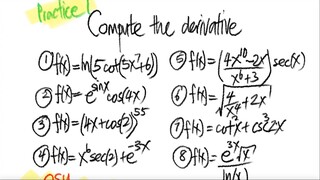 Practice!
Compute the derivative
① f(x)=ln(5cot(5x⁷+6))
② f(x)= e^sinx cos(4x)
③ f(x)= (4x+cos(2))^55
④ f(x)= x⁶sec(2)+e^-3x
⑤ f(x)= (4x¹⁰-2x / x⁶+3) sec(x)
⑥ f(x)= √(4/x⁴ + 2x)
⑦ f(x)= cot²x + csc³2x
⑧ f(x)= e^3x √x / ln(x)